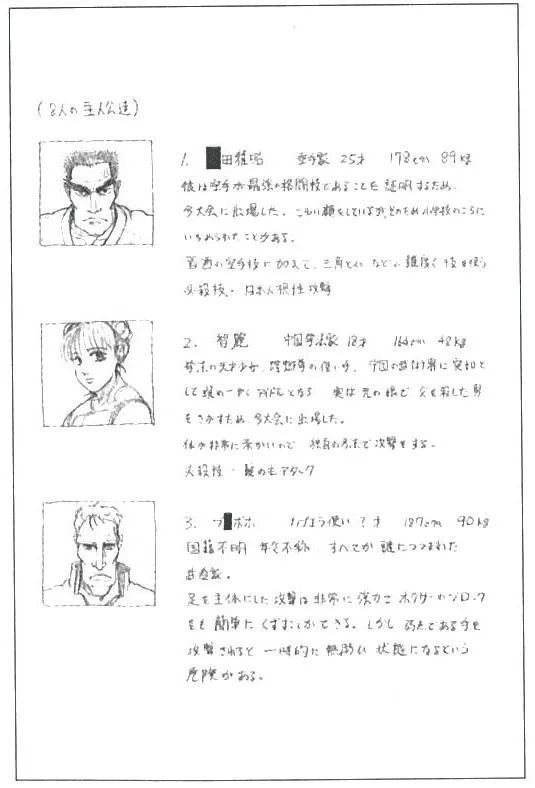 (8人の主人公達)
1. 田雅昭 空手家 25才 178cm 89kg
彼は空手が最強の格闘技であることを証明するため、
今大会に出場した。こわい顔をしているが、そのため小学校のころに
いじめられたことがある。
普通の空手技に加えて、三角とび などの 難度く 技を使う
必殺技・日本人根性攻撃
2. 智麗 中国拳法家 18才 164cm 48kg
の天才少女。の使い手。今回の
として アイドルとなる 実は の娘で 父を殺した男
をさがすため、今大会に出場した。
体が非常に 柔かいので 独自の方法で攻撃をする。
必殺技・髪の毛アタック
3. ブ ボホ カポエラ使い ?才 187cm 90kg
国籍不明 年令不称 すべてが 謎につつまれた
武道家。
足を主体にした攻撃は非常に強力で ボクサーのブロック
をも 簡単にくずすことができる。しかし 弱点である手を
攻撃されると 一時的に無防ひ 状態になるという
危険がある。